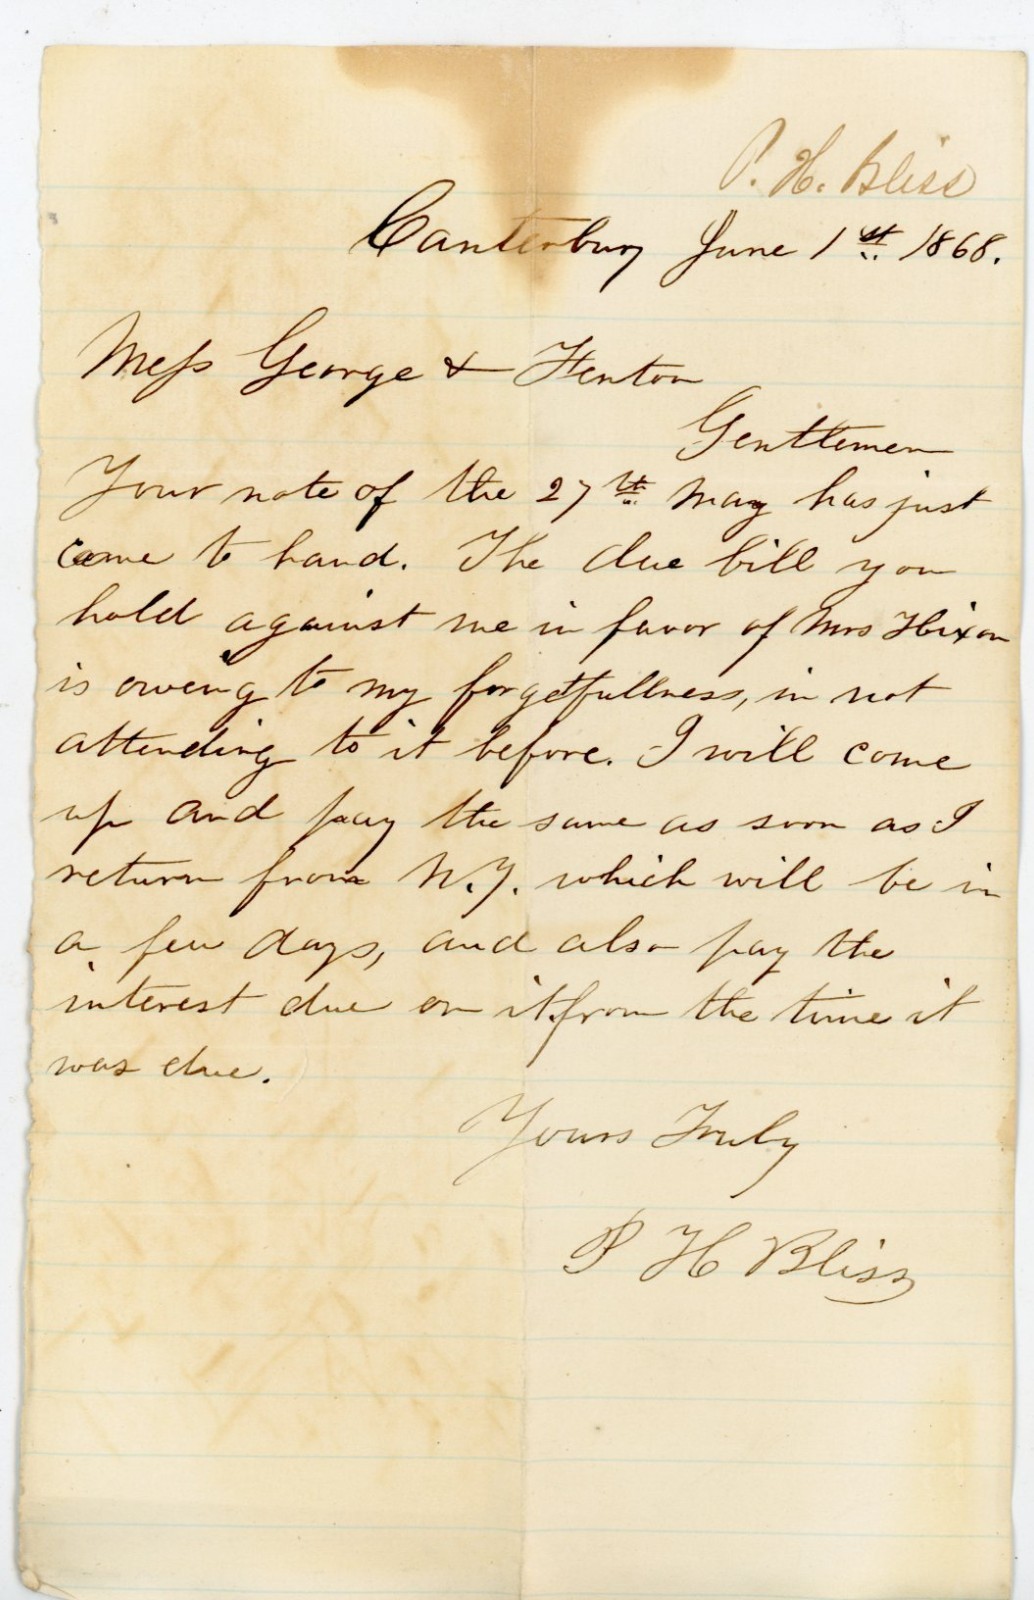 P. H. Bliss
Canterbury June 1st 1868.
Mess George & Fenton
Gentlemen
Your note of the 27th May has just
came to hand. The due bill you
hold against me in favor of Mrs Hixon
is oweing to my forgetfullness, in not
attending to it before. I will come
up and pay the same as soon as I
return from N.Y. which will be in
a few days, and also pay the
interest due on it from the time it
was due.
Yours Truly
P H Bliss